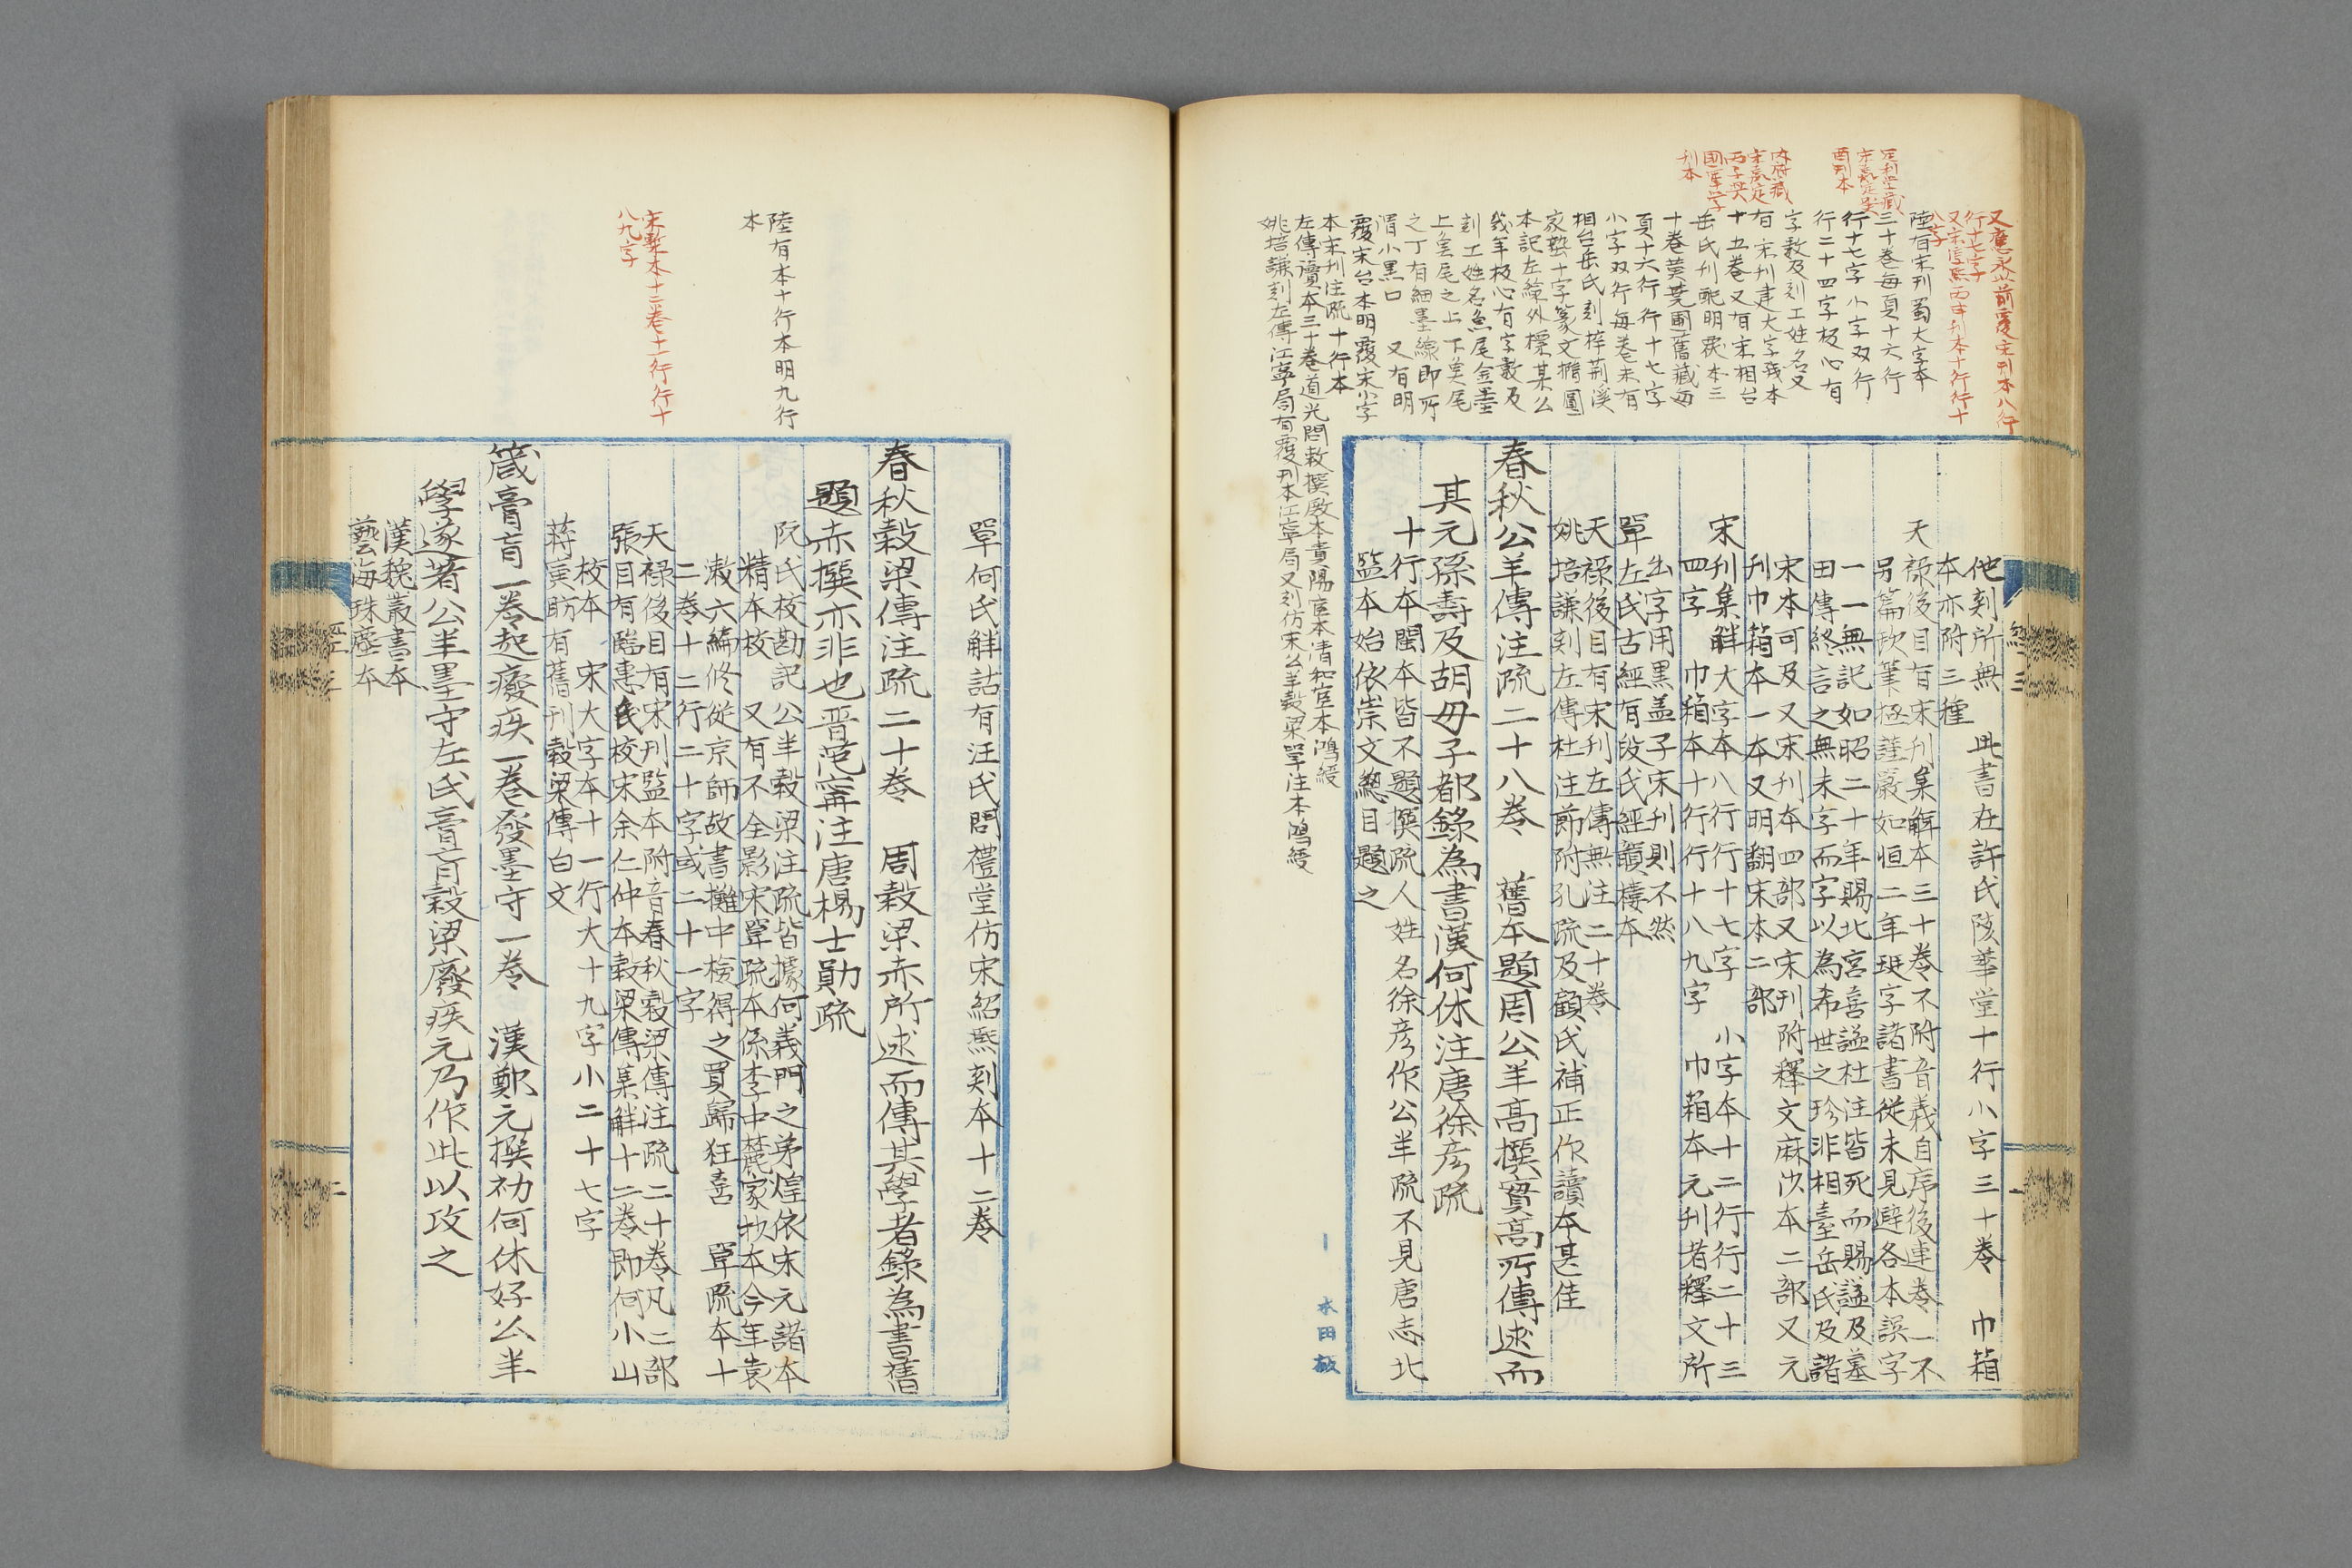 又應永以前覆宋刊本八行
行十七字
又宋淳熙丙申刊本十行行十
八字
足利學藏
宋嘉定
酉刊本
內府藏
宋嘉定
丙子興
國軍學
刊本
陸有宋刊蜀大字本
三十卷每頁十六行
行十七字小字双行
行二十四字板心有
字數及刻工姓名又
有宋刊建大字殘本
十五卷又有宋相台
岳氏刊配明覆本三
十卷黃蕘圃舊藏每
頁十六行行十七字
小字双行每卷末有
相台岳氏刻梓荊溪
家塾十字篆文橢圓
本記左線外標某公
幾年板心有字數及
刻工姓名魚尾全墨
上魚尾之上下魚尾
之丁有細墨線即所
謂小黑口 又有明
覆宋台本明覆宋小字
本宋刊注疏十行本
左傳讀本三十卷道光間敕撰殿本貴陽官本清和官本鴻綬
姚培謙刻左傳江寧局有覆刊本江寧局又刻仿宋公羊穀梁單注本鴻綬
他刻所無 此書在許氏陔華堂十行小字三十卷 巾箱
本亦附三種
天祿後目有宋刊集解本三十卷不附音義自序後連卷一不
另篇欵筆極謹嚴如恒二年珽字諸書從未見避各本誤字
一一無記如昭二十年賜北宮喜謚杜注皆死而賜謚及墓
田傳終言之無未字而字以為希世之珍非相臺岳氏及諸
宋本可及又宋刊本四部又宋刊附釋文麻沙本二部又元
刊巾箱本一本又明翻宋本二部
宋刊集解大字本八行行十七字 小字本十二行行二十三
四字 巾箱本十行行十八九字 巾箱本元刊者釋文所
出字用黑盖子宋刊則不然
單左氏古經有段氏經韻樓本
天祿後目有宋刊左傳無注二十卷
姚培謙刻左傳杜注節附孔疏及顧氏補正作讀本甚佳
春秋公羊傳注疏二十八卷 舊本題周公羊高撰實高所傳述而
其元孫壽及胡毋子都錄為書漢何休注唐徐彥疏
十行本閩本皆不題撰疏人姓名徐彥作公羊疏不見唐志北
監本始依崇文總目題之
單何氏觧詁有汪氏問禮堂仿宋紹熙刻本十二卷
陸有本十行本明九行
本
宋槧本十二卷十一行行十
八九字
春秋穀梁傳注疏二十卷 周穀梁赤所述而傳其學者錄為書舊
題赤撰亦非也晉范寗注唐楊士勛疏
阮氏校勘記公羊穀梁注疏皆據何義門之弟煌依宋元諸本
精本校 又有不全影宋單疏本係李中麓家抄本今年袁
漱六編修從京師故書攤中檢得之買歸狂喜 單疏本十
二卷十二行二十字或二十一字
天祿後目有宋刊監本附音春秋穀梁傳注疏二十卷凡二部
張目有臨惠氏校宋余仁仲本穀梁傳集觧十二卷即何小山
校本 宋大字本十一行大十九字小二十七字
蔣寅昉有舊刊穀梁傳白文
箴膏肓一卷起癈疾一卷發墨守一卷 漢鄭元撰初何休好公羊
學遂著公羊墨守左氏膏肓穀梁廢疾元乃作此以攻之
漢魏叢書本
藝海珠塵本
經三
一
二
本田板